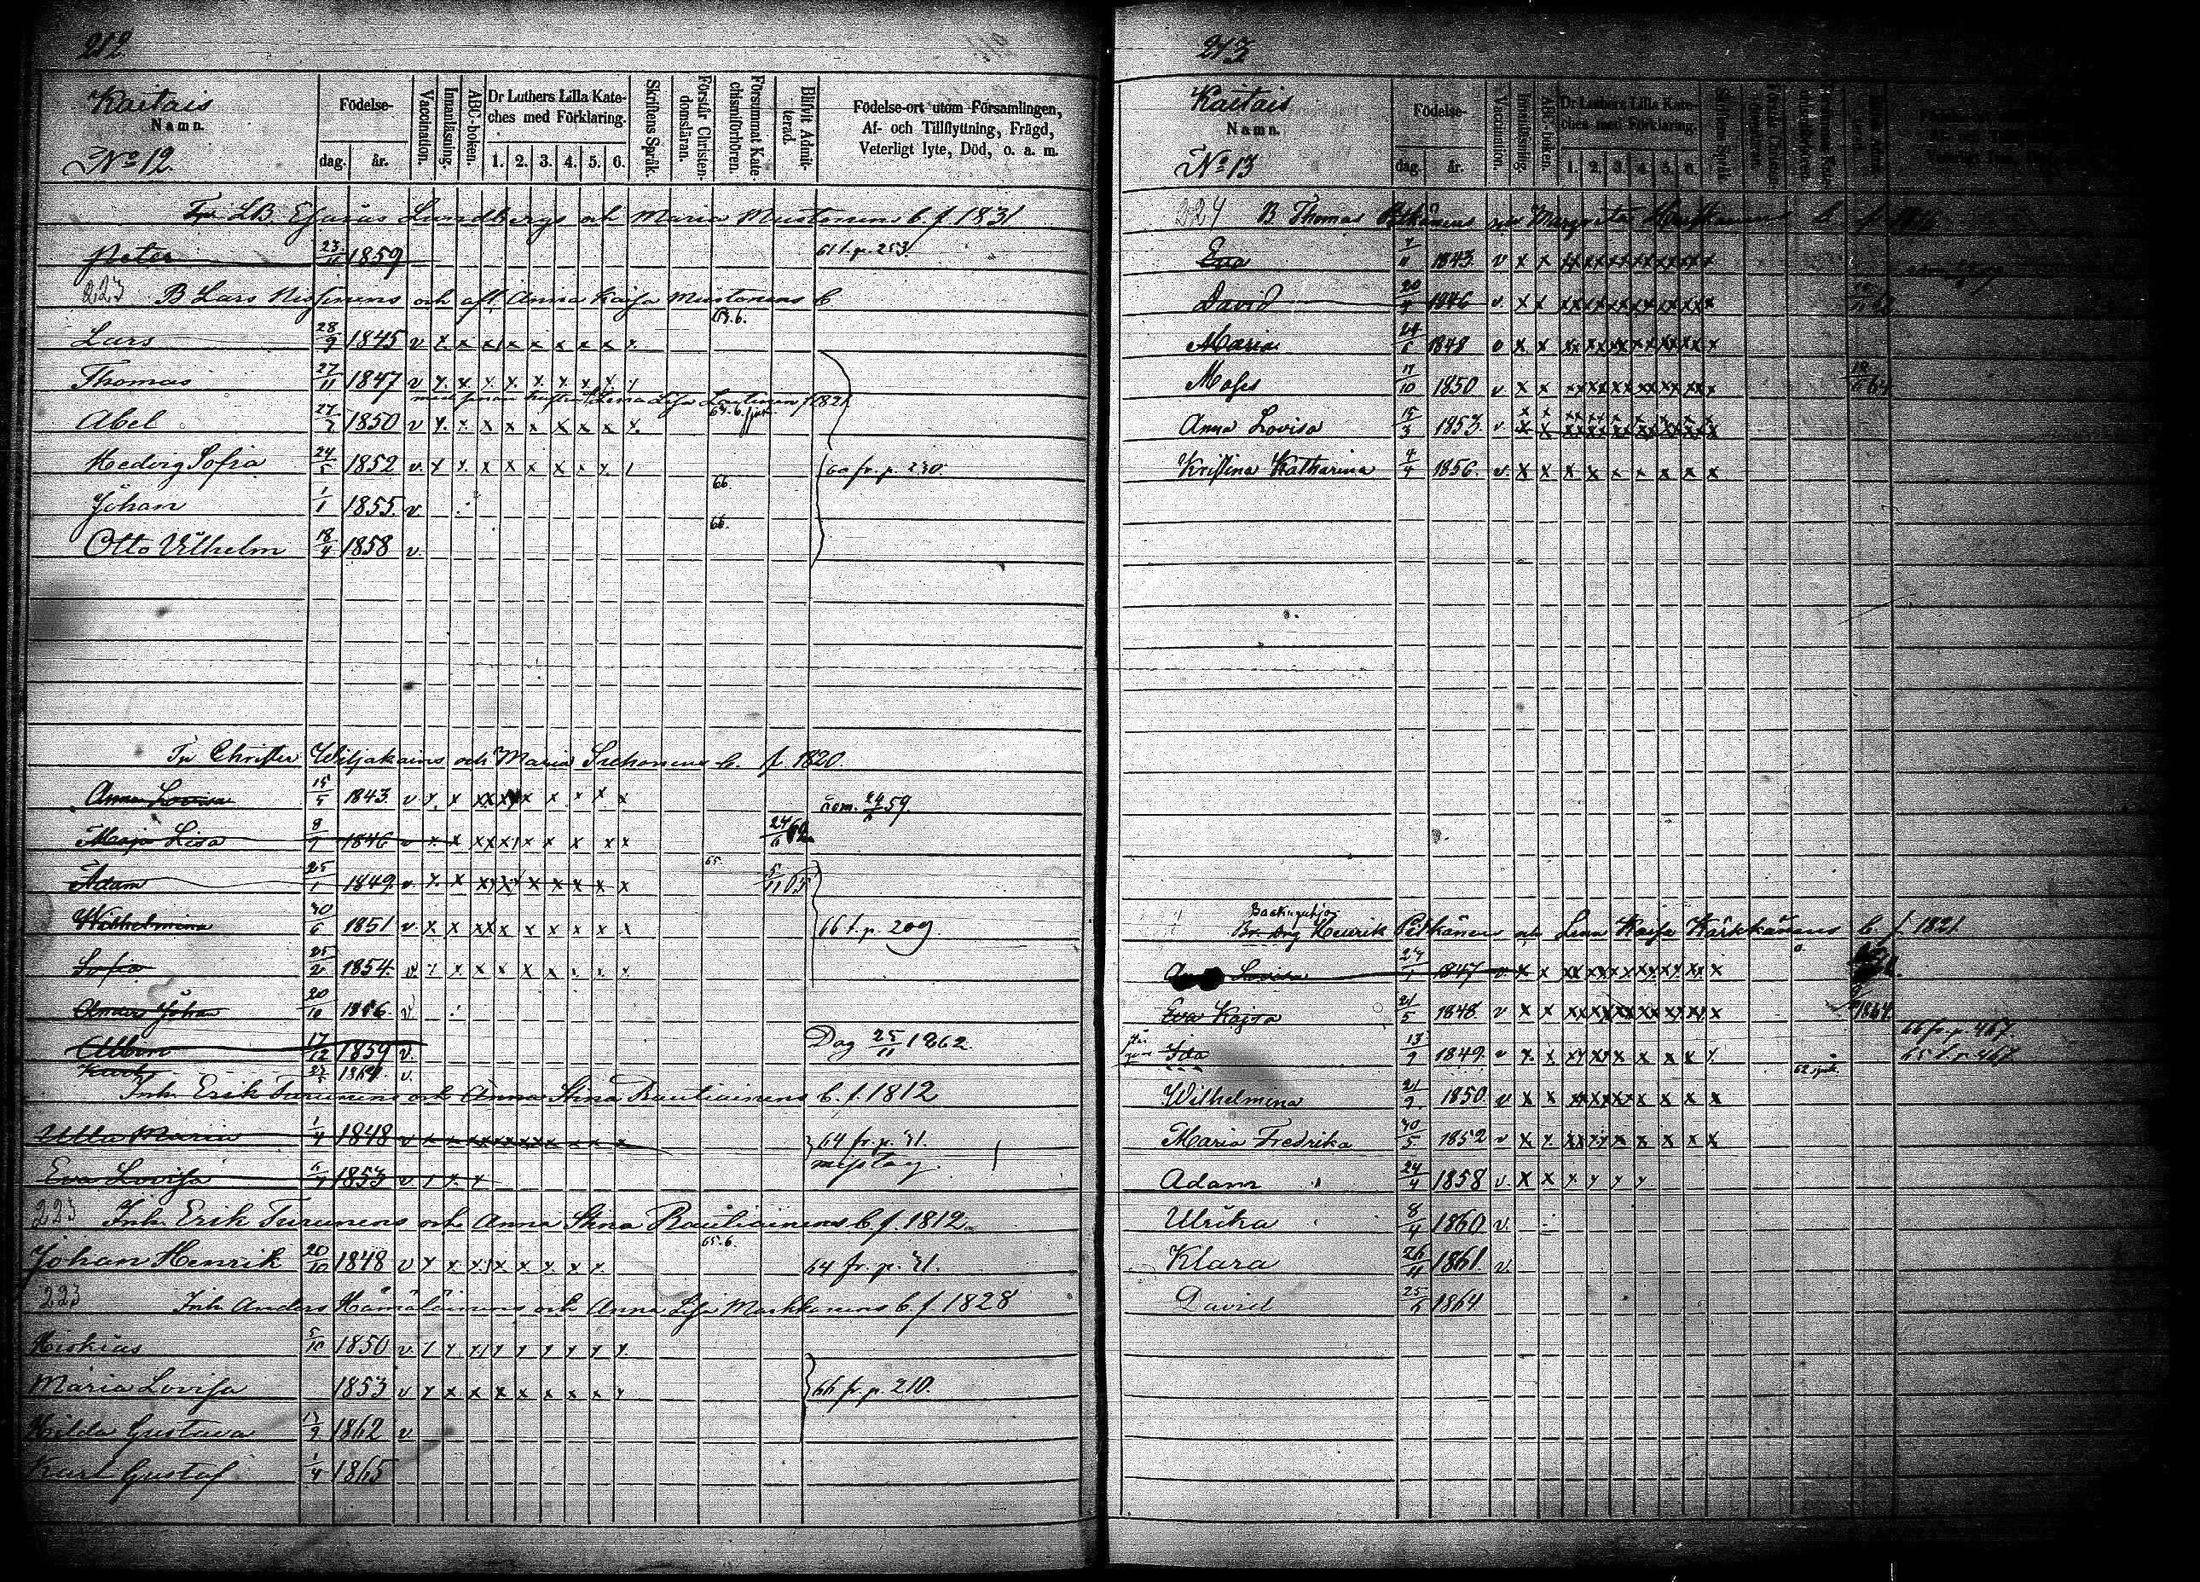 212
Kaitais
Namn.
No 12.
Födelse-
dag. år.
Vaccination.
Innanläsning.
ABC-boken.
Dr Luthers Lilla Kate-
ches med Förklaring.
1. 2. 3. 4. 5. 6.
Skriftens Språk.
Förstår Christen-
domsläran.
Försummat Kate-
chismiförhören.
Blifvit Admit-
terad.
Födelse-ort utom Församlingen,
Af- och Tillflyttning, Frägd,
Veterligt lyte, Död, o. a. m.
LB Esaias Lundbergs och Maria Mustonens b. f 1831
Peter 23/11 1859 61 t. p. 253.
223 B Lars Nissinens och afl. Anna Kaisa Mustonens b.
Lars 28/9 1845 v x x x x x x x x x 63.6.
Thomas 27/11 1847 v x x x x x x x x x
f 1821
Abel 27/7 1850 v x x x x x x x x x
Hedvig Sofia 24/5 1852 v. x x x x x x x x 60 fr. p. 230.
Johan 1/1 1855. v. 66.
Otto Vilhelm 18/4 1858 v. 66.
Christer Wiljakains och Maria Sichonens b. f. 1820.
Anna Lovisa 15/5 1843 v x x xx xx x x x x x
Maja Lisa 8/9 1846 v x x xx xx x x x x x 24/6
Adam 25/1 1849 v x x xx xx x x x x x 65. 5/11 65
Wilhelmina 30/6 1851 v x x xx x x x x x x 66 t. p. 209.
Sofia 25/2 1854 v. x x x x x x x x x
Anders Johan 20/10 1856 v
Albin 17/12 1859 v. Dog 25/11 1862
1861 v.
Inh. Erik Turunens och Anna Stina Rautiainens b. f. 1812
Ulla Maria 1/4 1848 v x x xx xx xx x x x 64 fr. p. 31.
misstag.
Eva Lovisa 1853 v x x x
223 Inh. Erik Turunens och Anna Stina Rautiainens b. f. 1812.
Johan Henrik 20/10 1848 v x x xx x x x x x 65.6. 64 fr. p. 31.
223 Inh. Anders Hämäläinens och Anna Lisa Markkanens b. f 1828
Hiskias 5/10 1850 v. x x xx x x x x x
Maria Lovisa 1853 v x x x x x x x x 66 fr. p. 210.
Hilda Gustava 13/9 1862 v
Karl Gustaf 1/4 1865
213
Kaitais
Namn.
No 13
Födelse-
dag. år.
Vaccination.
Innanläsning.
ABC-boken.
Dr Luthers Lilla Kate-
ches med Förklaring.
1. 2. 3. 4. 5. 6.
224 B Thomas
Eva 7/11 1843 v x x xx xx xx xx xx xx x
David 20/7 1846 v. x x xx xx xx xx xx xx x
Maria 24/6 1848 v x x xx xx xx xx xx xx x
Moses 17/10 1850 v x x xx xx xx xx xx xx x
Anna Lovisa 15/3 1853 v x x xx xx xx xx xx xx x
Kristina Katharina 4/4 1856 v. x x x x x x x x x
Backstuguhjon
Henrik Pitkänens och Lena Kaisa Kärkkänens b. f. 1821
Lovisa 27/1 1847 v. x x xx xx xx xx xx xx x
Eva Kajsa 21/5 1848 v x x xx xx xx xx xx xx x 1864
66 fr p 467
Ida 13/9 1849 v x x xx xx x x x x x 65 t. p 467
Wilhelmina 21/9 1850 v x x xx xx xx x x x x
Maria Fredrika 30/5 1852 v x x xx xx x x x x x
Adam 24/4 1858 v. x x x x x x
Ulrika 8/4 1860 v.
Klara 26/11 1861 v.
David 25/6 1864